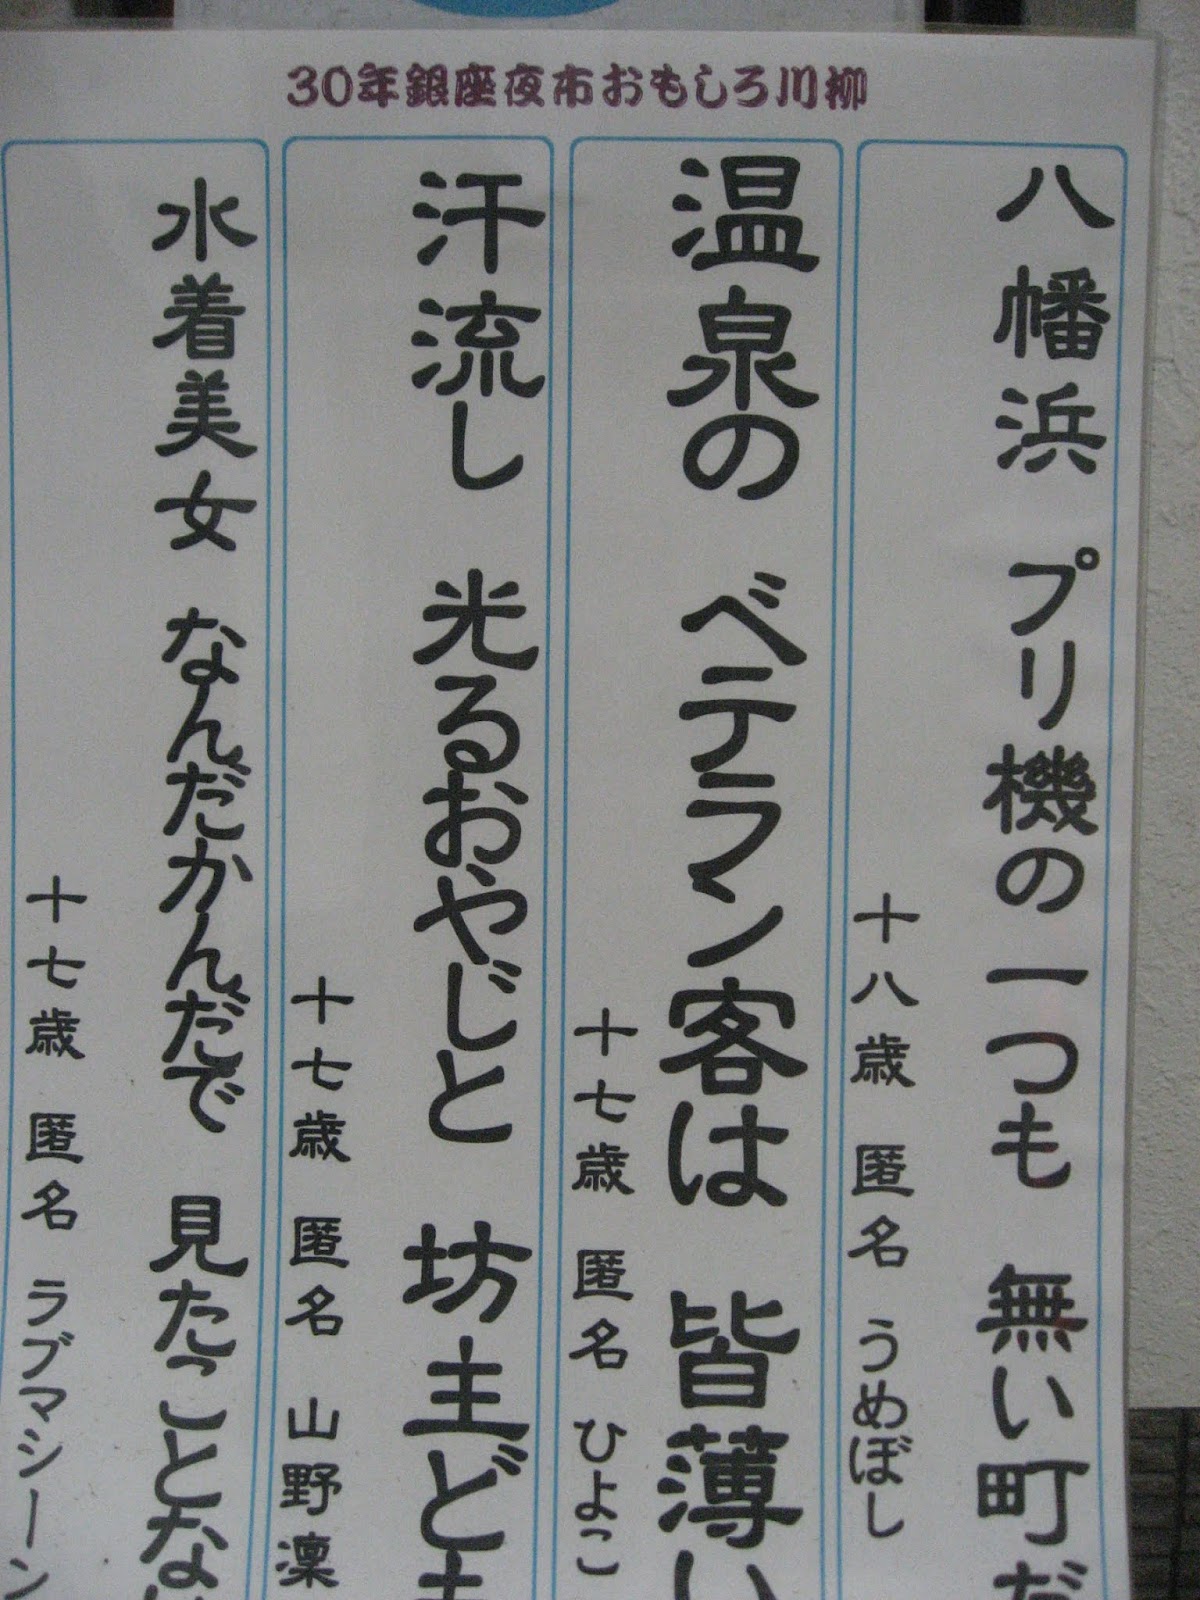 30年銀座夜市おもしろ川柳
八幡浜 プリ機の一つも 無い町だ
十八歳 匿名 うめぼし
温泉の ベテラン客は 皆薄い
十七歳 匿名 ひよこ
汗流し 光るおやじと 坊主ども
十七歳 匿名 山野凜
水着美女 なんだかんだで 見たことな
十七歳 匿名 ラブマシーン